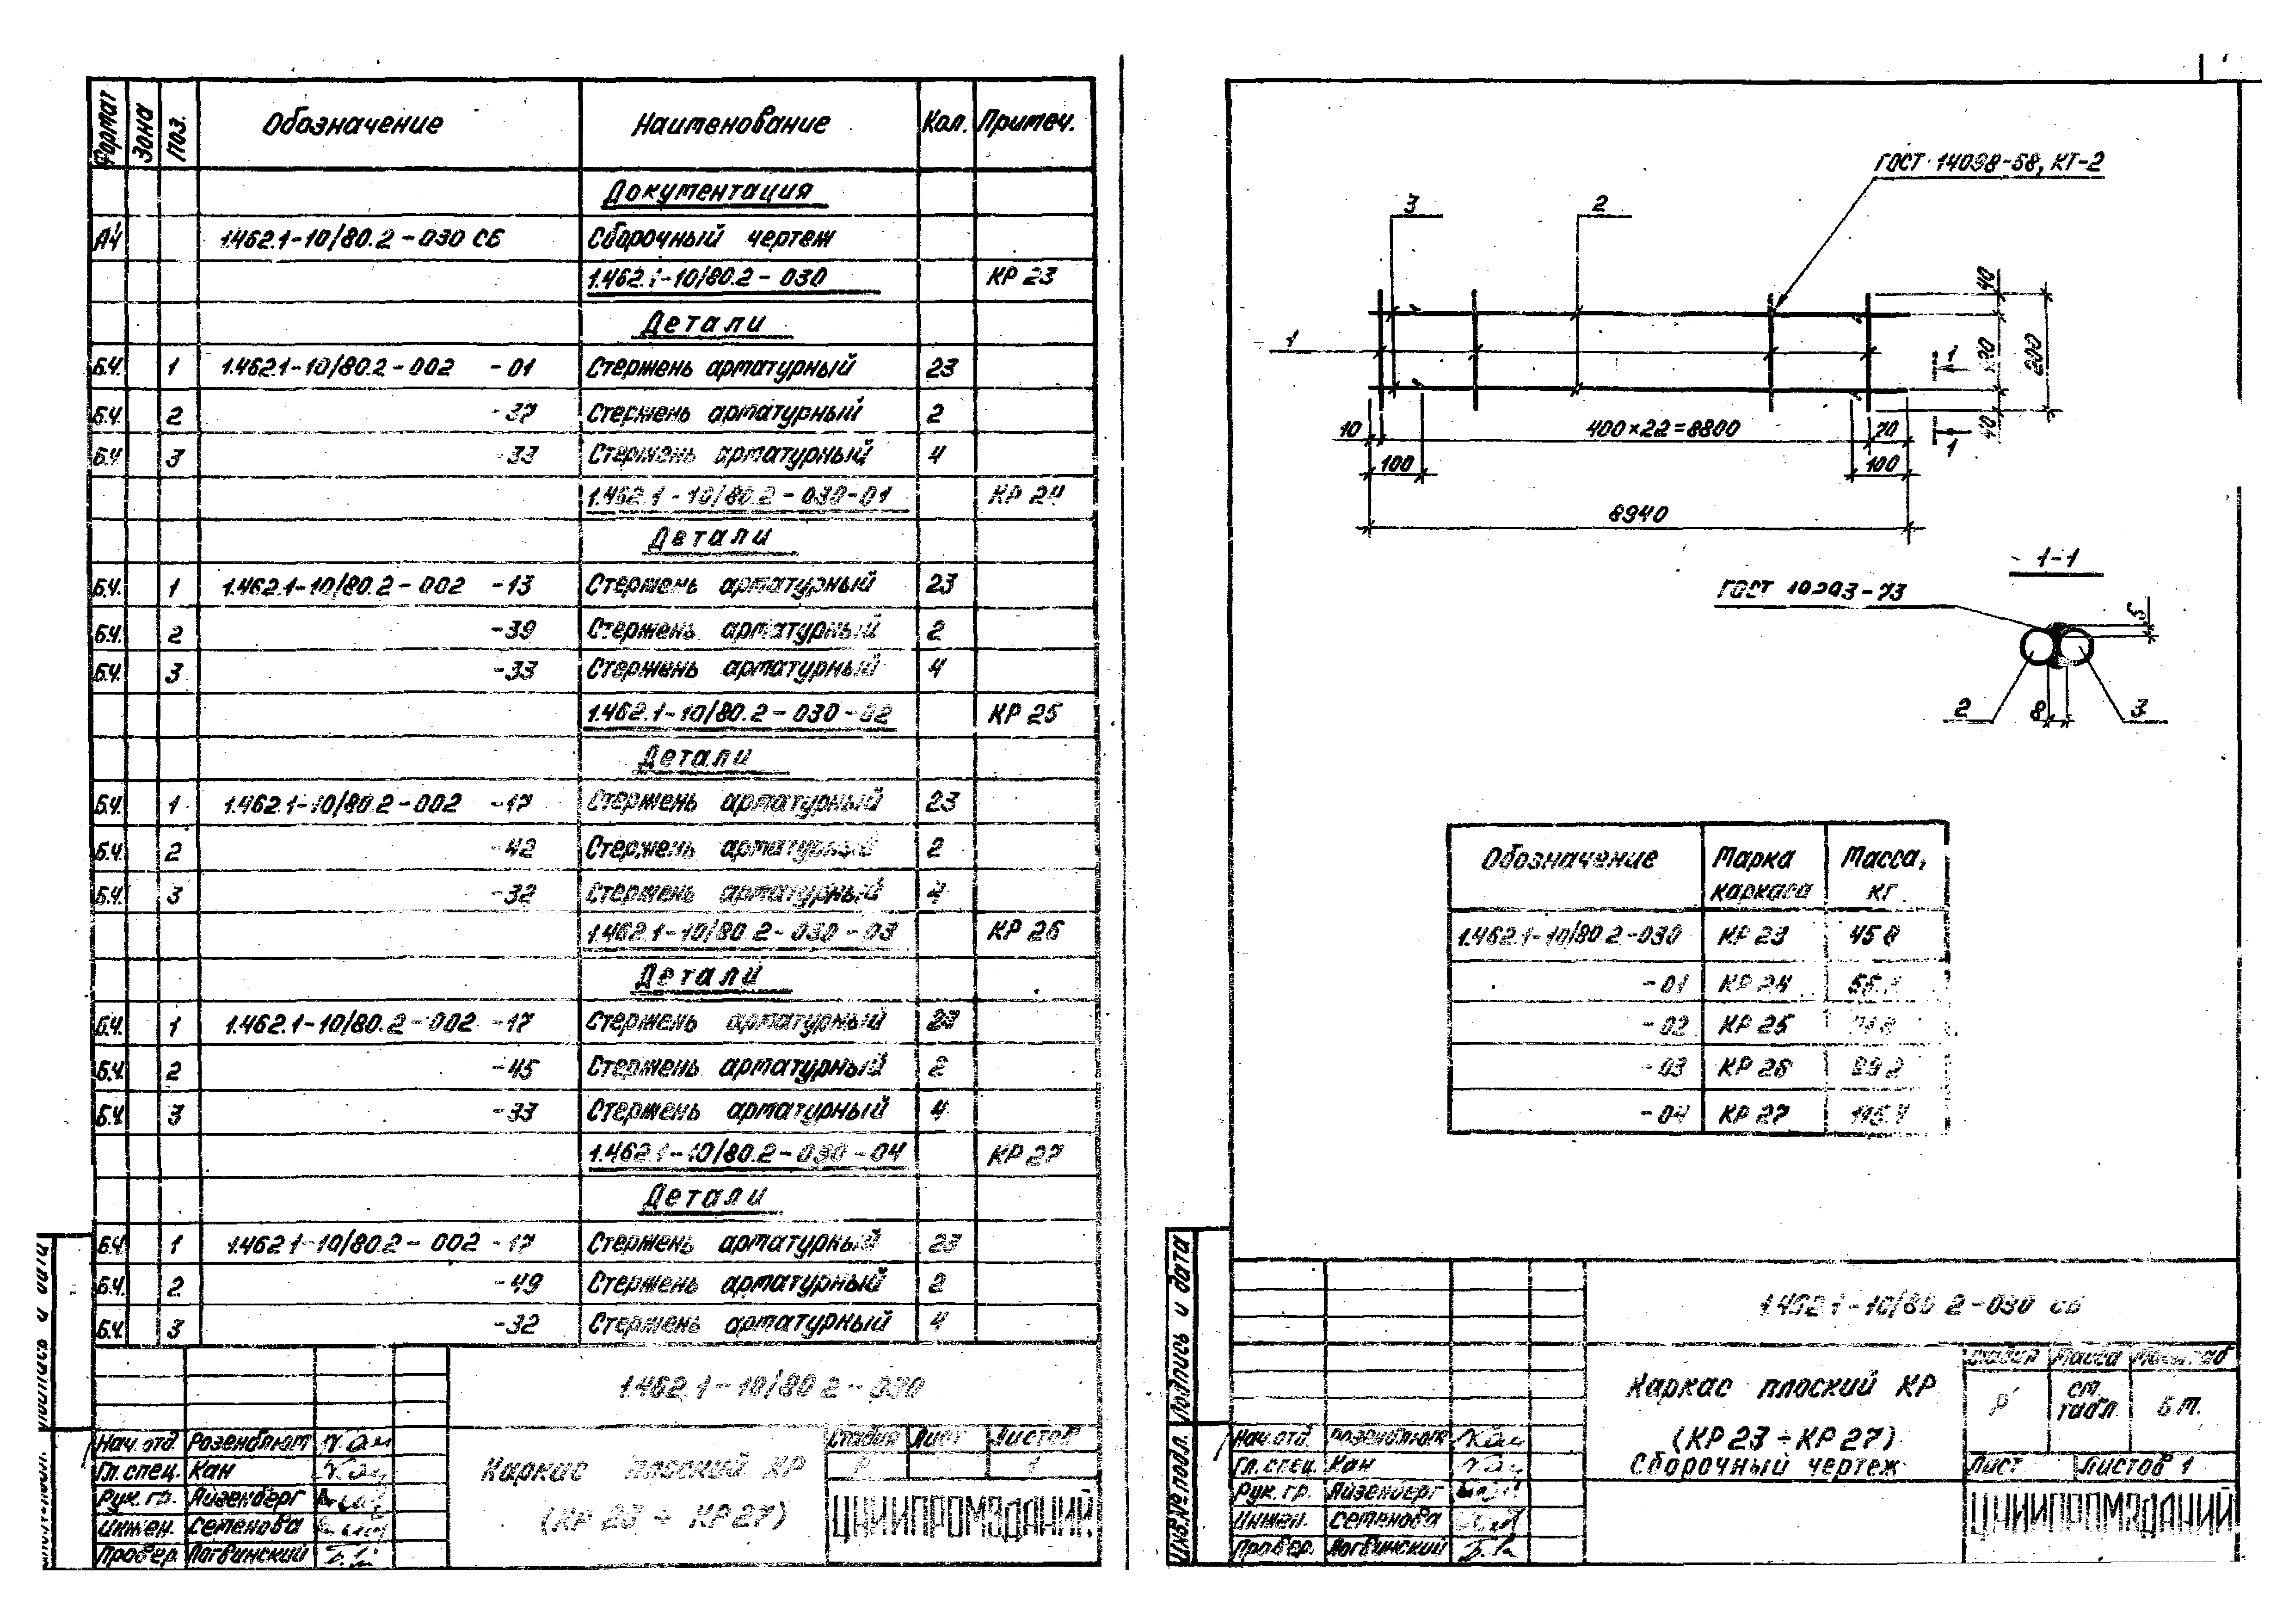 Формат Зона Поз. Обозначение Наименование Кол. Примеч.
Документация
А4 1.462.1-10/80.2-030 СБ Сборочный чертеж
1.462.1-10/80.2-030 КР 23
Детали
Б.Ч. 1 1.462.1-10/80.2-002 -01 Стержень арматурный 23
Б.Ч. 2 -37 Стержень арматурный 2
Б.Ч. 3 -33 Стержень арматурный 4
1.462.1-10/80.2-030-01 КР 24
Детали
Б.Ч. 1 1.462.1-10/80.2-002 -13 Стержень арматурный 23
Б.Ч. 2 -39 Стержень арматурный 2
Б.Ч. 3 -33 Стержень арматурный 4
1.462.1-10/80.2-030-02 КР 25
Детали
Б.Ч. 1 1.462.1-10/80.2-002 -17 Стержень арматурный 23
Б.Ч. 2 -42 Стержень арматурный 2
Б.Ч. 3 -32 Стержень арматурный 4
1.462.1-10/80.2-030-03 КР 26
Детали
Б.Ч. 1 1.462.1-10/80.2-002 -17 Стержень арматурный 23
Б.Ч. 2 -45 Стержень арматурный 2
Б.Ч. 3 -33 Стержень арматурный 4
1.462.1-10/80.2-030-04 КР 27
Детали
Б.Ч. 1 1.462.1-10/80.2-002 -17 Стержень арматурный 23
Б.Ч. 2 -49 Стержень арматурный 2
Б.Ч. 3 -32 Стержень арматурный 4
1.462.1-10/80.2-030
Нач. отд. Розенблюм
Гл. спец. Кан
Рук. гр. Айзенберг
Инжен. Семенова
Провер. Логвинский
Каркас плоский КР
(КР 23 ÷ КР 27)
Стадия Лист Листов
Р 1
ЦНИИПРОМЗДАНИЙ
ГОСТ 14098-68, КТ-2
3 2
1
40
120
200
40
1
1
10 400×22=8800 70
100 100
8940
1-1
ГОСТ 19293-73
5
2 8 3
Обозначение Марка каркаса Масса, кг
1.462.1-10/80.2-030 КР 23
-01 КР 24
-02 КР 25
-03 КР 26
-04 КР 27
Подпись и дата
Инв.№ подл.
1.462.1-10/80.2-030 СБ
Каркас плоский КР
(КР 23 ÷ КР 27)
Сборочный чертеж
Стадия Масса Масштаб
Р см. табл. Б.М.
Лист Листов 1
Нач. отд. Розенблюм
Гл. спец. Кан
Рук. гр. Айзенберг
Инжен. Семенова
Провер. Логвинский
ЦНИИПРОМЗДАНИЙ